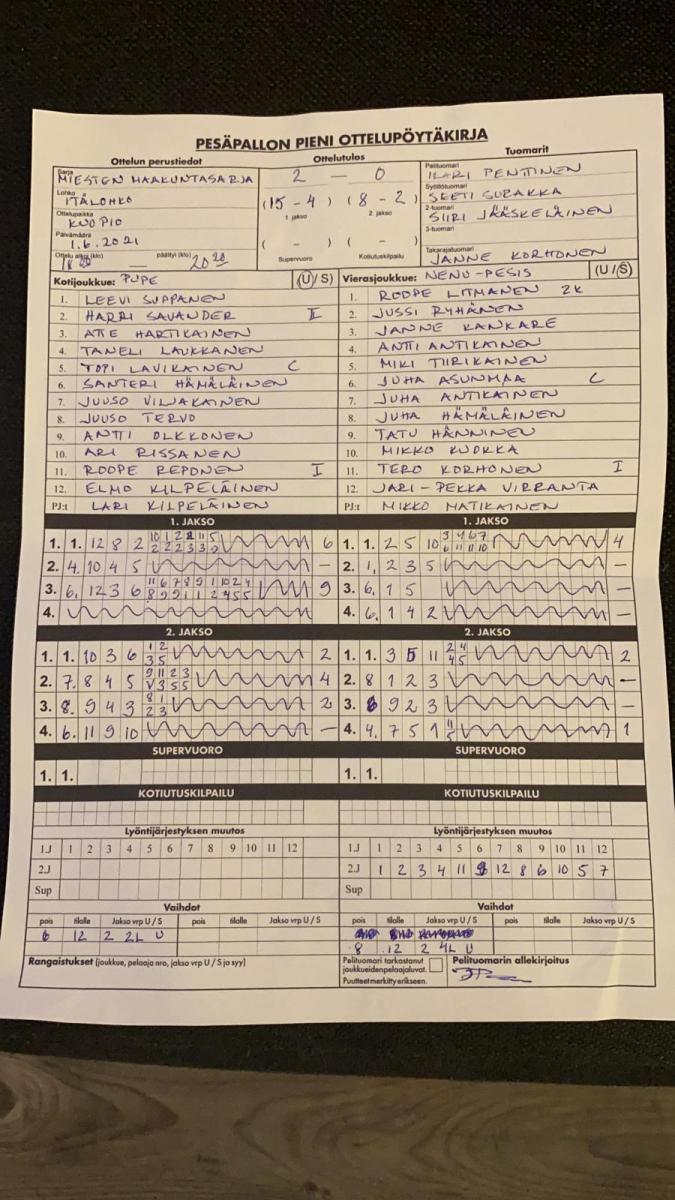 PESÄPALLON PIENI OTTELUPÖYTÄKIRJA
Ottelun perustiedot Ottelutulos Tuomarit
Sarja MIESTEN MAAKUNTASARJA 2 — 0 Pelituomari ILARI PENTTINEN
Lohko ITÄLOHKO (15 - 4) (8 - 2) Syöttötuomari
1. jakso 2. jakso
Ottelupaikka KUOPIO 2-tuomari SIIRI JÄÄSKELÄINEN
Päivämäärä 1.6.2021 ( - ) ( - ) 3-tuomari
Ottelu alkoi (klo) 18 00 päättyi (klo) 20 20 Supervuoro Kotiutuskilpailu Takarajatuomari JANNE KORHONEN
Kotijoukkue: PUPE (U/S) Vierasjoukkue: NENU-PESIS (U/S)
1. LEEVI SUPPANEN 1. ROOPE LITMANEN 2K
2. HARRI SAVANDER II 2. JUSSI RYHÄNEN
3. ATTE HARTIKAINEN 3. JANNE KANKARE
4. TANELI LAUKKANEN 4. ANTTI ANTIKAINEN
5. TOPI LAVIKAINEN C 5. MIKI TIIRIKAINEN
6. SANTERI HÄMÄLÄINEN 6. JUHA ASUNMAA C
7. JUUSO VILJAKAINEN 7. JUHA ANTIKAINEN
8. JUUSO TERVO 8. JUHA HÄMÄLÄINEN
9. ANTTI OLKKONEN 9. TATU HÄNNINEN
10. ARI RISSANEN 10. MIKKO KUOKKA
11. ROOPE REPONEN I 11. TERO KORHONEN I
12. ELMO KILPELÄINEN 12. JARI-PEKKA VIRRANTA
PJ:t LARI KILPELÄINEN PJ:t MIKKO MATIKAINEN
1. JAKSO 1. JAKSO
1. 1. 12 8 2 6 1. 1. 2 5 10 4
2. 4. 10 4 5 — 2. 1, 2 3 5 —
3. 6, 12 3 6 9 3. 6, 1 5 —
4. 4. 6, 1 4 2 —
2. JAKSO 2. JAKSO
1. 1. 10 3 6 1 2 2 1. 1. 3 5 11 2 4 2
3 5 4 5
2. 7. 8 4 5 9 11 2 3 4 2. 8 1 2 3 —
V 3 5 5
3. 8. 9 4 3 8 1 2 3. 9 2 3 —
2 3
4. 6. 11 9 10 — 4. 4, 7 5 1 1
SUPERVUORO SUPERVUORO
1. 1. 1. 1.
KOTIUTUSKILPAILU KOTIUTUSKILPAILU
Lyöntijärjestyksen muutos Lyöntijärjestyksen muutos
1.J 1 2 3 4 5 6 7 8 9 10 11 12 1.J 1 2 3 4 5 6 7 8 9 10 11 12
2.J 2.J 1 2 3 4 11 9 12 8 6 10 5 7
Sup Sup
Vaihdot Vaihdot
pois tilalle Jakso vrp U / S pois tilalle Jakso vrp U / S pois tilalle Jakso vrp U / S pois tilalle Jakso vrp U / S
6 12 2 2L U
8 12 2 4L U
Rangaistukset (joukkue, pelaaja nro, jakso vrp U / S ja syy) Pelituomari tarkastanut Pelituomarin allekirjoitus
joukkueidenpelaajaluvat.
Puutteet merkitty erikseen.